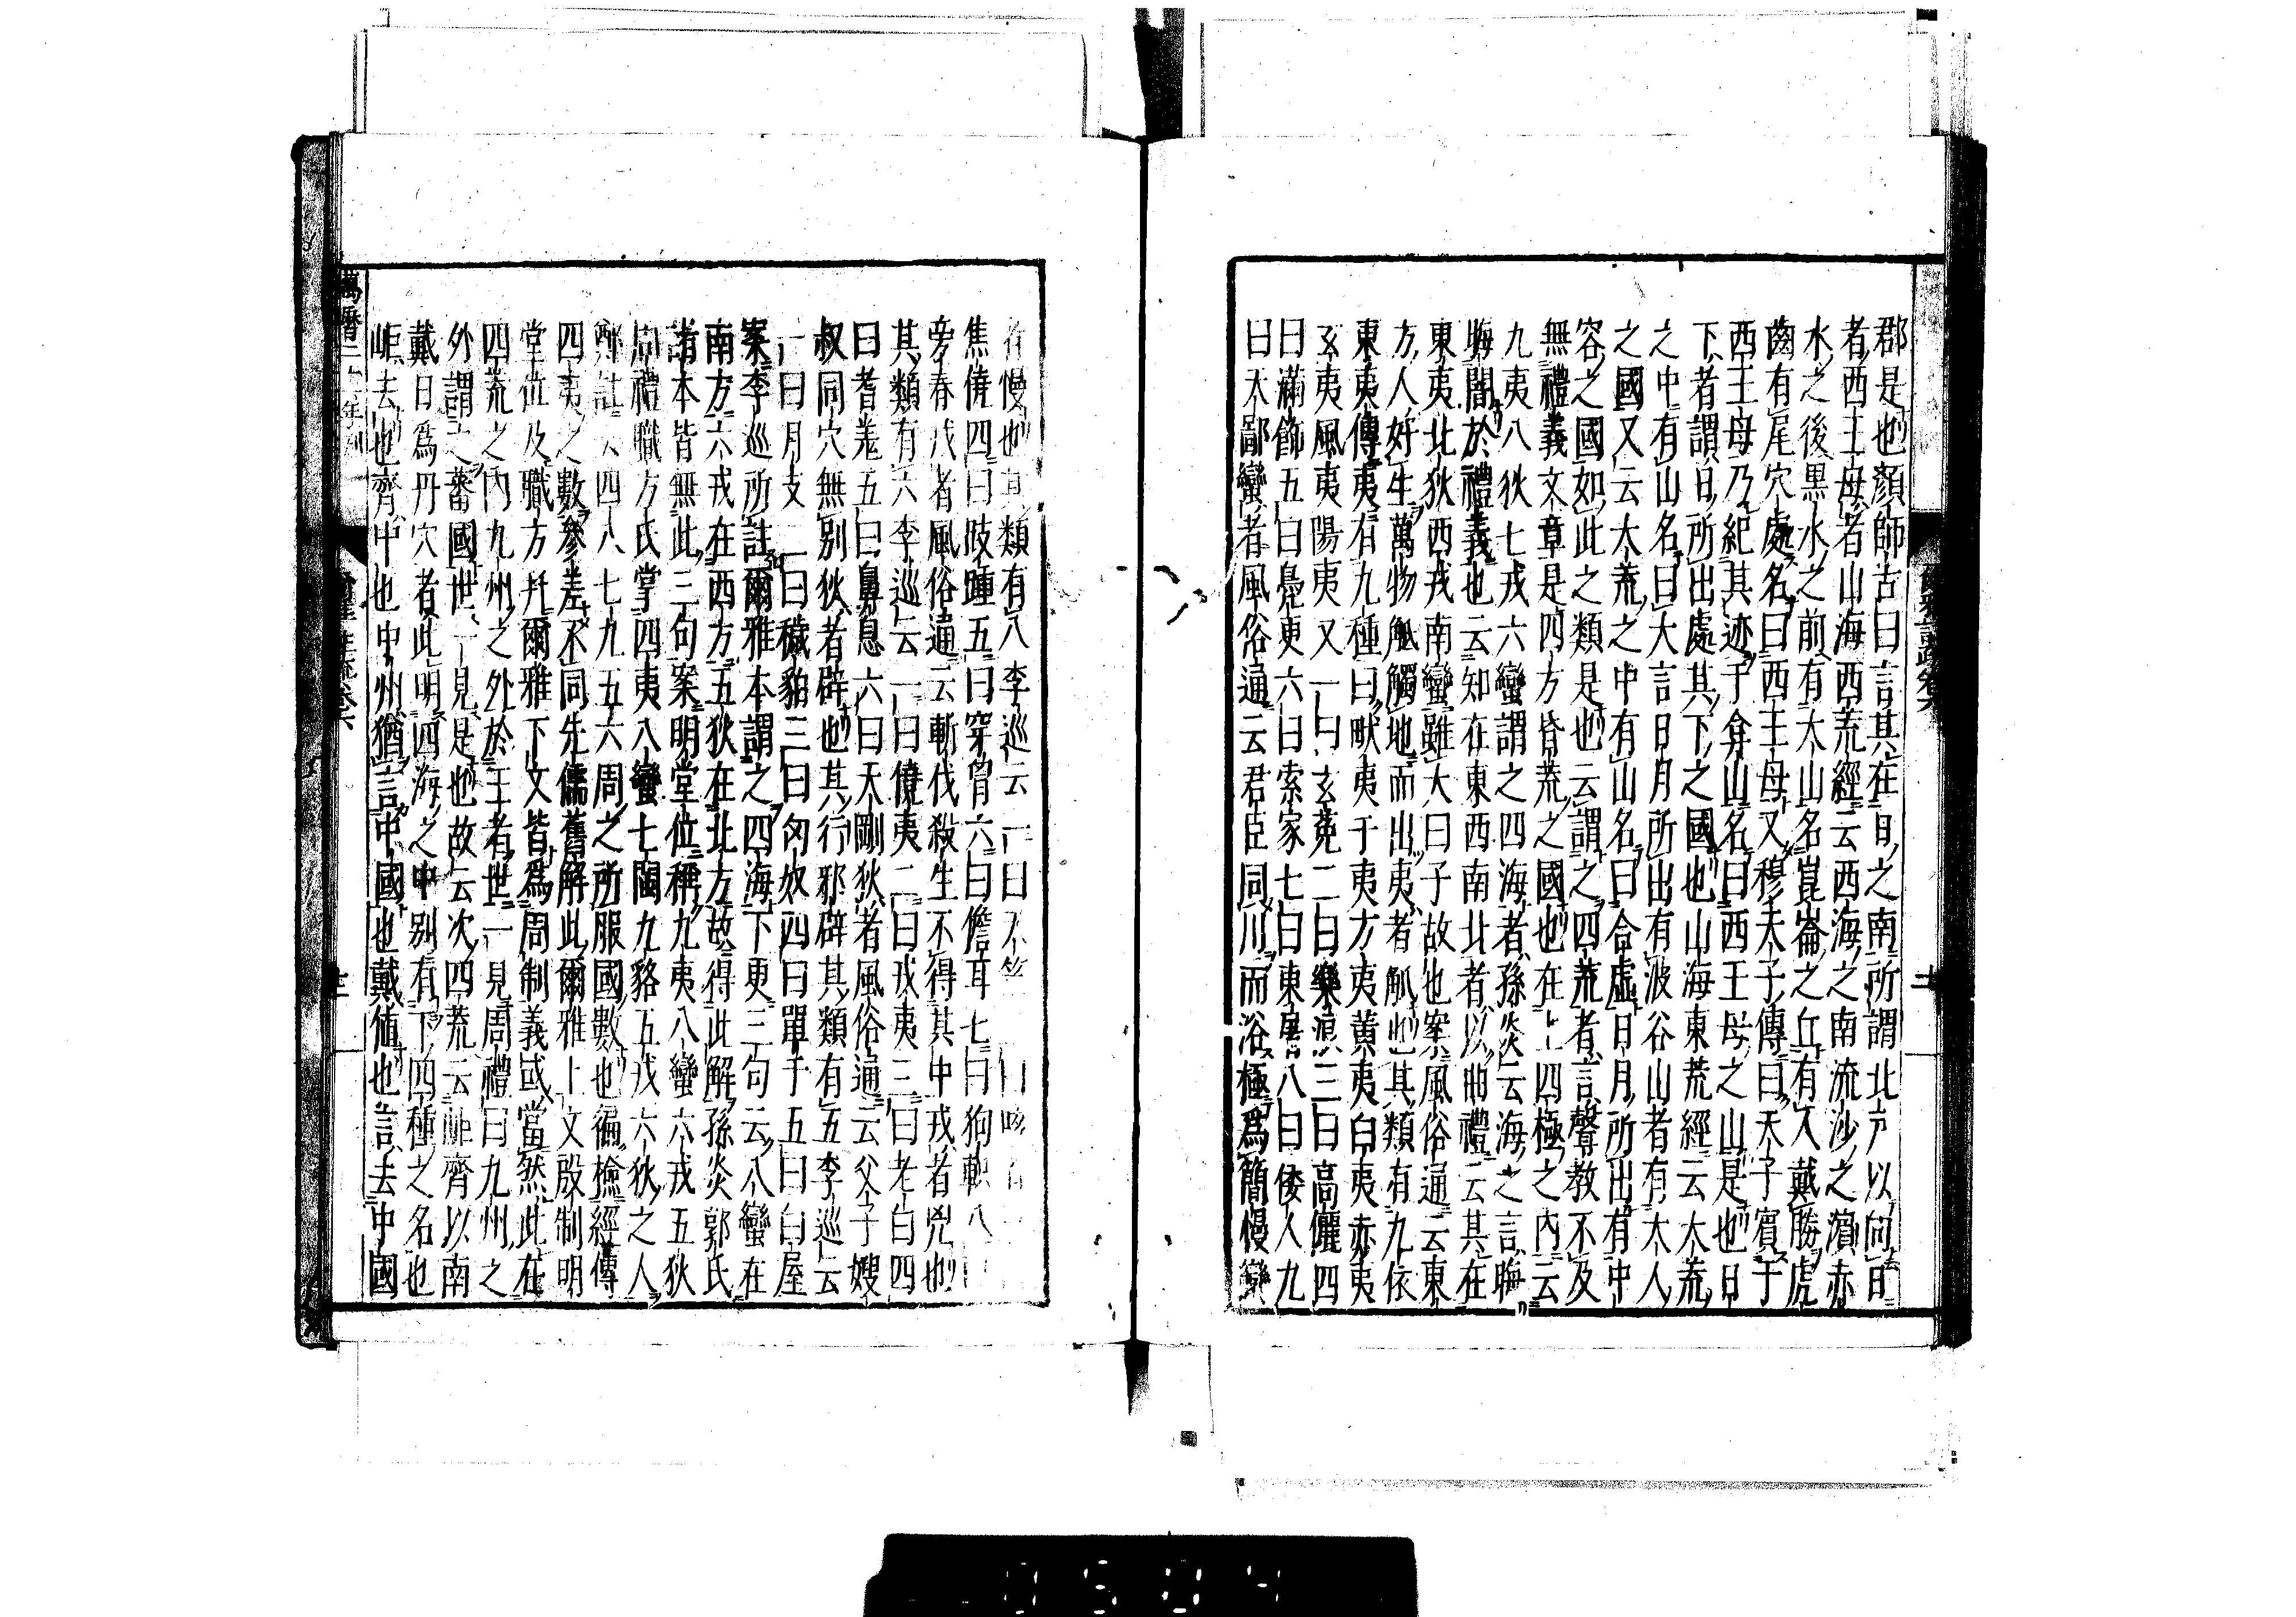 郡是也顏師古曰言其在日之南所謂北戶以向日
者西王母者山海西荒經云西海之南流沙之濵赤
水之後黒水之前有大山名崑崙之丘有人戴勝虎
齒有尾穴處名曰西王母又穆天子傳曰天子賓于
西王母乃紀其迹于弇山名曰西王母之山是也日
下者謂日所出處其下之國也山海東荒經云大荒
之中有山名曰大言日月所出有波谷山者有大人
之國又云大荒之中有山名曰合虛日月所出有中
容之國如此之類是也云謂之四荒者言聲教不及
無禮義文章是四方昏荒之國也在上四極之内云
九夷八狄七戎六蠻謂之四海者孫炎云海之言晦
晦闇於禮義也云知在東西南北者以曲禮云其在
東夷北狄西戎南蠻雖大曰子故也案風俗通云東
方人好生萬物觝觸地而出夷者觝也其類有九依
東夷傳夷有九種曰畎夷于夷方夷黄夷白夷赤夷
玄夷風夷陽夷又一曰玄菟二曰樂浪三曰高儷四
曰滿飾五曰鳧更六曰索家七曰東屠八曰倭人九
曰天鄙蠻者風俗通云君臣同川而浴極爲簡慢蠻
者慢也其類有八李巡云一曰天竺二曰咳首三曰
焦僥四曰跂踵五曰穿胷六曰儋耳七曰狗軹八曰
旁春戎者風俗通云斬伐殺生不得其中戎者兇也
其類有六李巡云一曰僥夷二曰戎夷三曰老白四
曰耆羗五曰鼻息六曰天剛狄者風俗通云父子嫂
叔同穴無別狄者辟也其行邪辟其類有五李巡云
一曰月支二曰穢貊三曰匈奴四曰單于五曰白屋
案李巡所註爾雅本謂之四海下更三句云八蠻在
南方六戎在西方五狄在北方故得此解孫炎郭氏
諸本皆無此三句案明堂位稱九夷八蠻六戎五狄
周禮職方氏掌四夷八蠻七閩九貉五戎六狄之人
鄭註云四八七九五六周之所服國數也徧撿經傳
四夷之數參差不同先儒舊解此爾雅上文殷制明
堂位及職方幷爾雅下文皆爲周制義或當然此在
四荒之内九州之外於王者世一見周禮曰九州之
外謂之蕃國世一見是也故云次四荒云岠齊以南
戴日爲丹穴者此明四海之中別有下四種之名也
岠去也齊中也中州猶言中國也戴值也言去中國
爾雅註疏卷六